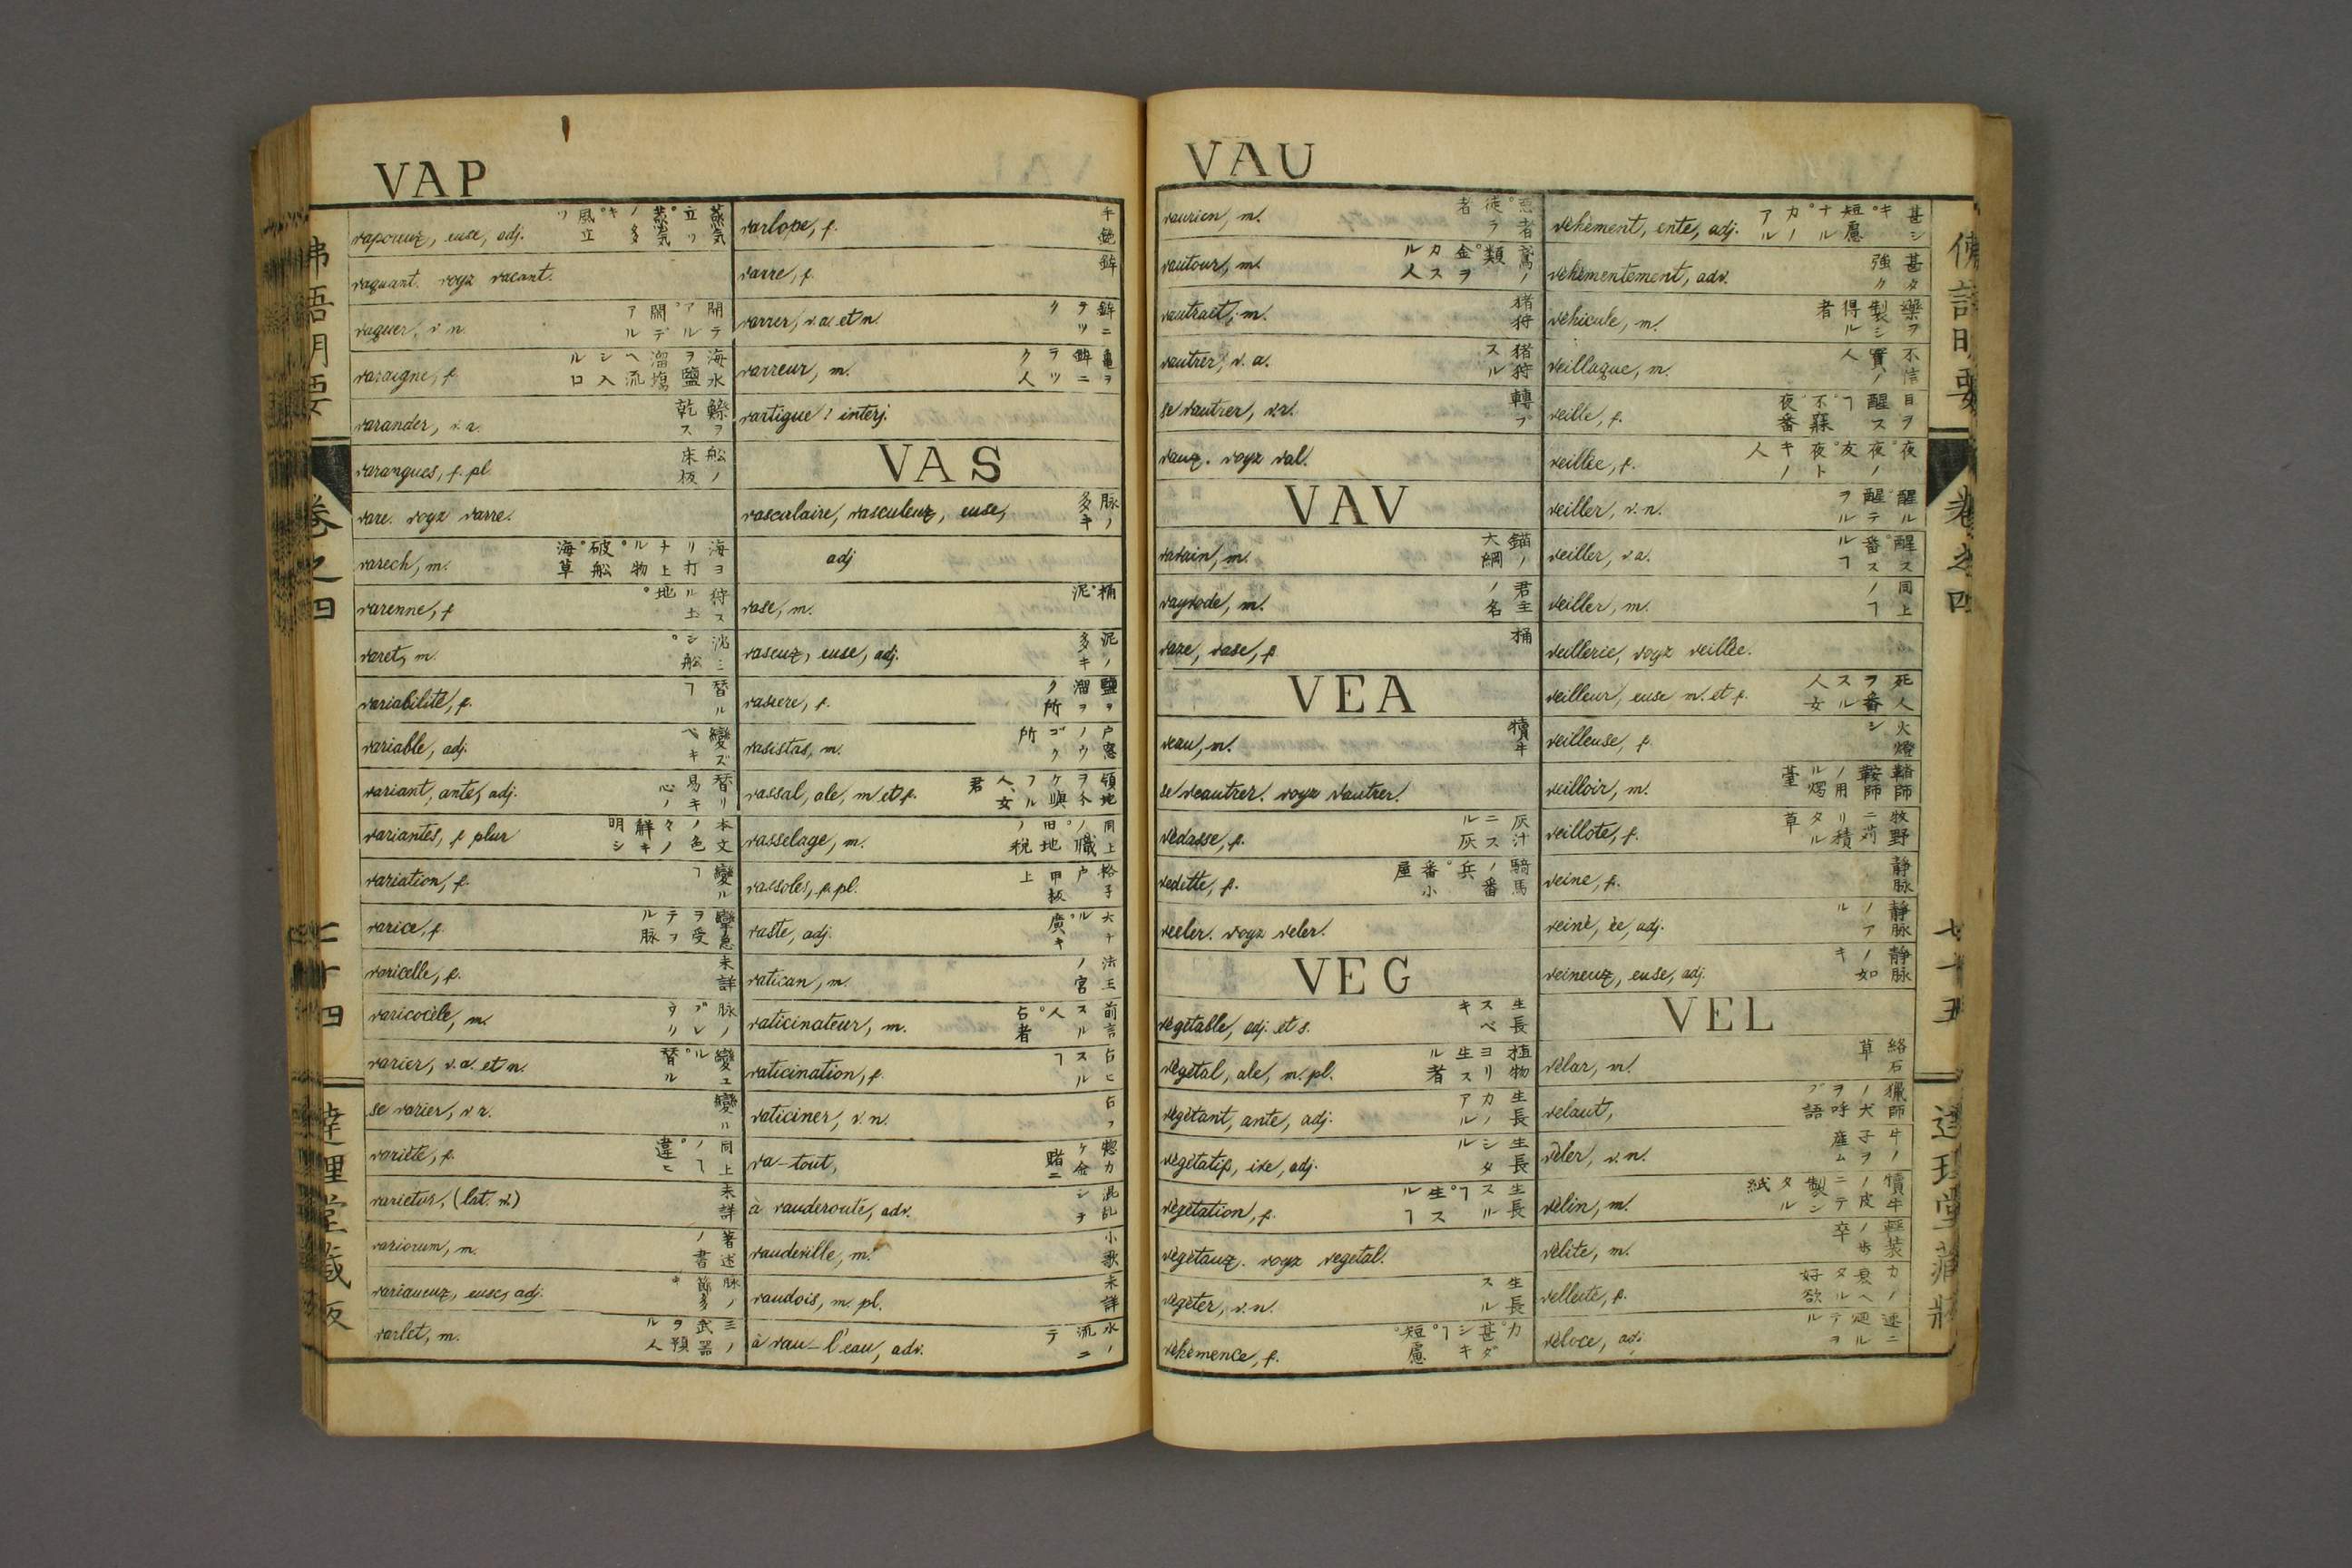 VAP
vapoureux, euse, adj. 蒸気立ツ。蒸気多ノキ。風立ツ
vaquant. voyz vacant.
vaquer, v. n. 開テアル。開デアル
varaigne, f. 海水ヲ鹽溜塲ヘ流シ入ル口
varander, v. a. 鯡ヲ乾ス
varangues, f. pl 船ノ床板
vare. voyz varre.
varech, m. 海ヨリ打上ナル物。破船。海草
varenne, f 狩スル土地。
varet, m. 沈ミシ船。
variabilité, f. 替ルヿ
variable, adj. 變ズベキ
variant, ante, adj. 替リ易キ心ノ
variantes, f plur 本文ノ色々ノ解キ明シ
variation, f. 變ルヿ
varice, f. 攣急ヲ受テヲル脉
varicelle, f. 未詳
varicocèle, m.
varier, v. a. et n. 變ユル。替ル
se varier, v r. 變ハル
variété, f. 同上ノヿ。違ヒ
varietur, (lat. v.) 未詳
variorum, m. 著述ノ書
variqueux, euse, adj. 脉ノ節多キ
varlet, m. 三ノ武器ヲ預ル人
varlope, f.
varre, f. 鉾
varrer, v. a. et n. 鉾ニテツク
varreur, m. 龜ヲ鉾ニテツク人
vartigue! interj.
VAS
vasculaire, vasculeux, euse, 脉ノ多キ
adj
vase, m. 桶。泥
vaseux, euse, adj. 泥ノ多キ
vasiere, f. 鹽ヲ溜ヲク所
vasistas, m. 戸窓ノウゴク所
vassal, ale, m et f.
vasselage, m. 同上ノ職。田地ノ税
vassoles, f. pl. 格子戸甲板上
vaste, adj. 大ナル。廣キ
vatican, m. 法王ノ宮
vaticinateur, m. 前言スル人。占者
vaticination, f. 占ヒスルヿ
vaticiner, v. n. 占フ
va-tout, 惣カケ金賭ニ
à vauderoute, adv. 混乱シテ
vaudeville, m. 小歌
vaudois, m. pl. 未詳
à vau-l'eau, adv. 水ノ流ニテ
佛語明要
卷之四
七十四
達理堂藏版
VAU
vaurien, m. 悪者。徒ラ者
vautour, m. 鳶ノ類。金ヲカスル人
vautrait, m. 猪狩
vautrer, v. a. 猪狩スル
se vautrer, v. r. 轉ブ
vaux. voyz val.
VAV
vavain, m. 錨ノ大綱
vayvode, m. 君主ノ名
vaze, vase, f 桶
VEA
veau, m. 犢牛
se veautrer. voyz vautrer.
védasse, f. 灰汁ニスル灰
vedette, f. 騎馬ノ番兵。番小屋
veeler. voyz veler.
VEG
végétable, adj. et s. 生長スベキ
végétal, ale, m. pl. 植物ヨリ生スル者
végétant, ante, adj. 生長ノカアル
végétatif, ive, adj. 生長シタル
végétation, f. 生長スルヿ。生スルヿ
végétaux. voyz vegetal.
végéter, v. n. 生長スル
véhémence, f. 力。甚ダシキヿ。短慮。
véhément, ente, adj. 甚シキ。短慮ナル。カノアル
véhémentement, adv. 甚タ強ク
véhicule, m. 藥ヲ製シ得ル者
veillaque, m. 不信實ノ人
veille, f. 目ヲ醒スヿ。不寐。夜番
veillée, f. 夜。夜ノ友。夜トキノ人
veiller, v. n. 醒ル。醒テヲル
veiller, v. a. 醒ス。番スルヿ
veiller, m. 同上ノヿ
veillerie, voyz veillée.
veilleur, euse m. et f. 死人ヲ番スル人女
veilleuse, f.
veilloir, m. 鞜師鞍師ノ用ル燭臺
veillote, f. 牧野ニ苅リ積タル草
veine, f. 静脉
veiné, ée, adj. 静脉ノアル
veineux, euse, adj. 静脉ノ如キ
VEL
vélar, m. 絡石草
velaut, 獵師ノ犬ヲ呼ブ語
vêler, v. n. 牛ノ子ヲ産ム
vélin, m. 犢牛ノ皮ニテ製シタル紙
vélite, m. 輕装ノ歩卒
velléité, f. カノ衰ヘタル好欲
véloce, adj. 速ニ
佛語明要
卷之四
七十五
達理堂藏版